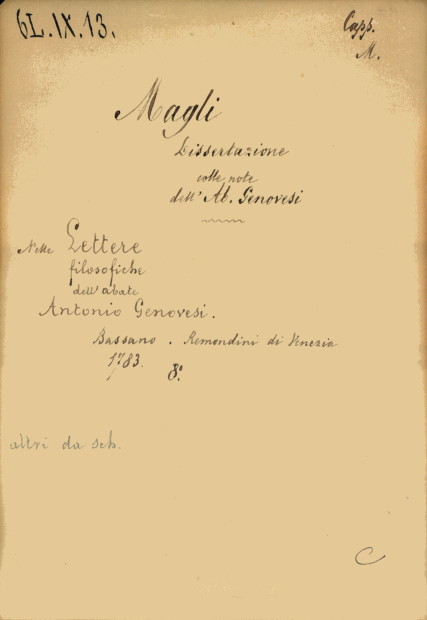 6L.IX.13.
Capp.
M.
Magli
Dissertazione
colle note
dell' Ab. Genovesi
Nelle Lettere
filosofiche
dell'abate
Antonio Genovesi.
Bassano. Remondini di Venezia
1783. 8.°
altri da sch.
C